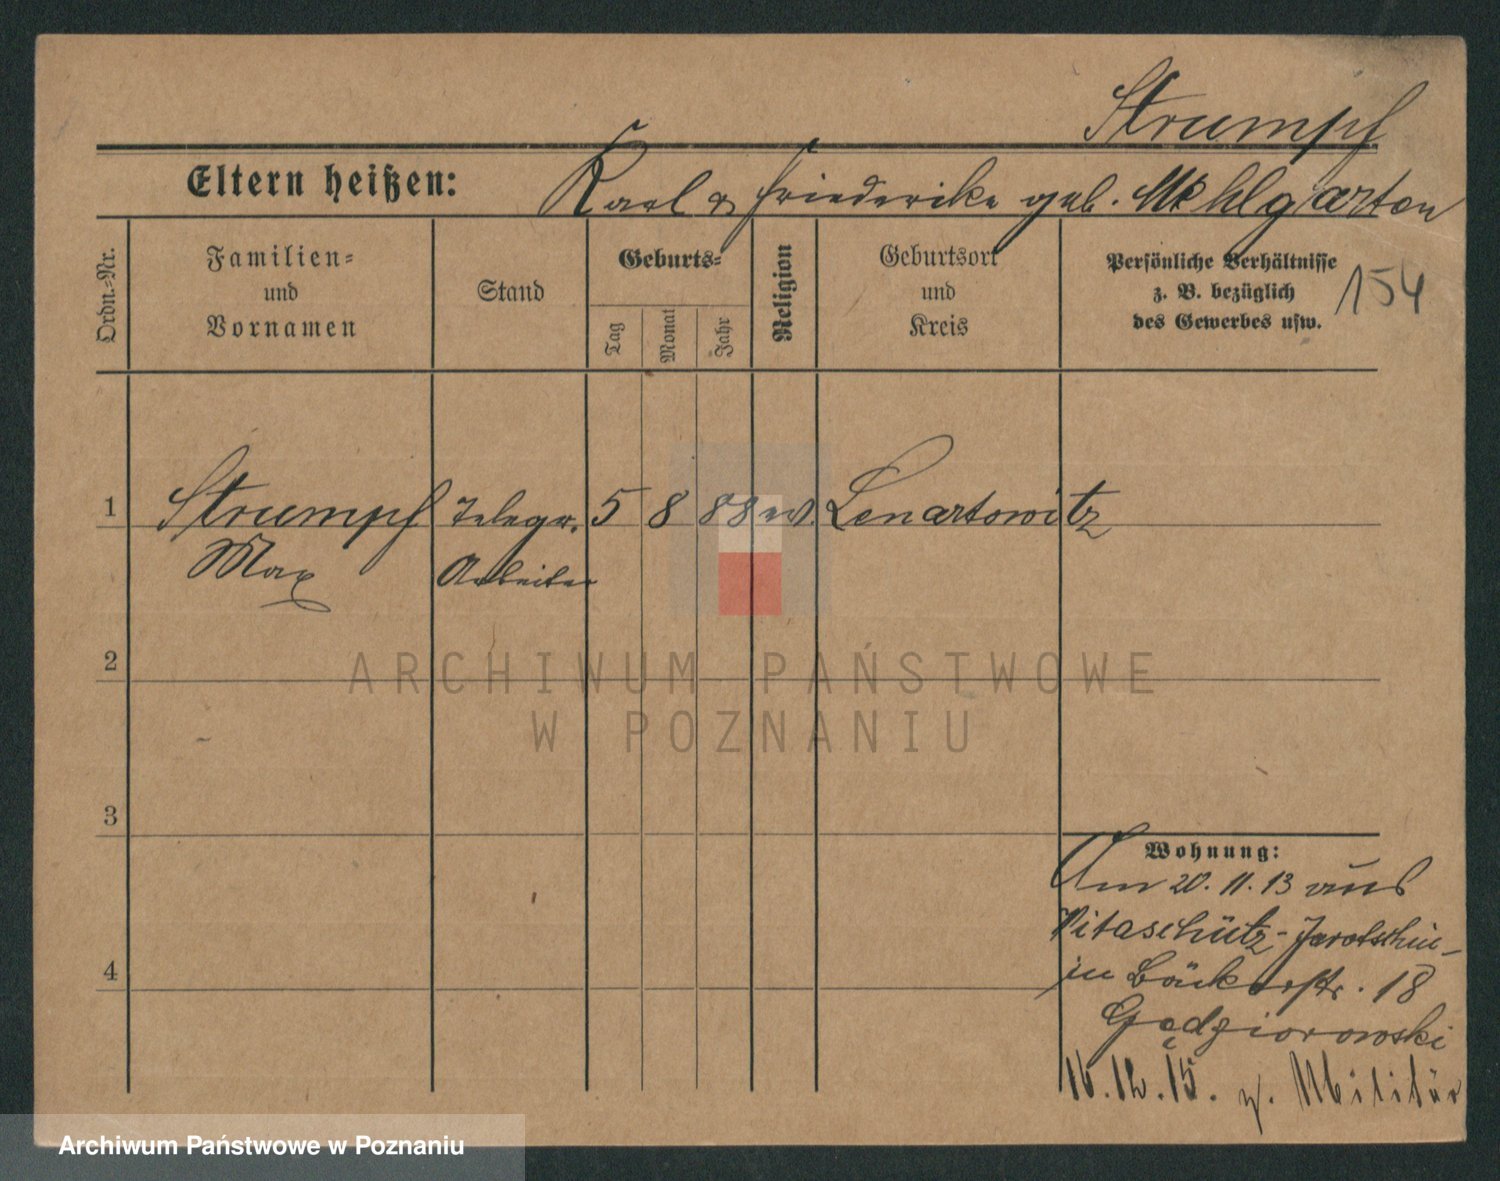 Strumpf
Eltern heißen: Karl & Friederike geb. Mehlgarten
Ordn.-Nr.
Familien-
und
Vornamen
Stand
Geburts-
Tag
Monat
Jahr
Religion
Geburtsort
und
Kreis
Persönliche Verhältnisse
z. B. bezüglich
des Gewerbes usw.
154
1 Strumpf Telegr. 5 8 88 ev. Lenartowitz
Max Arbeiter
2
3
4
Wohnung:
Am 20. 11. 13 aus
Pitaschütz-Jarotschin-
in Bäckerstr. 18
Gądziorowski
16.12.15. z. Militär
ARCHIWUM PAŃSTWOWE
W POZNANIU
Archiwum Państwowe w Poznaniu